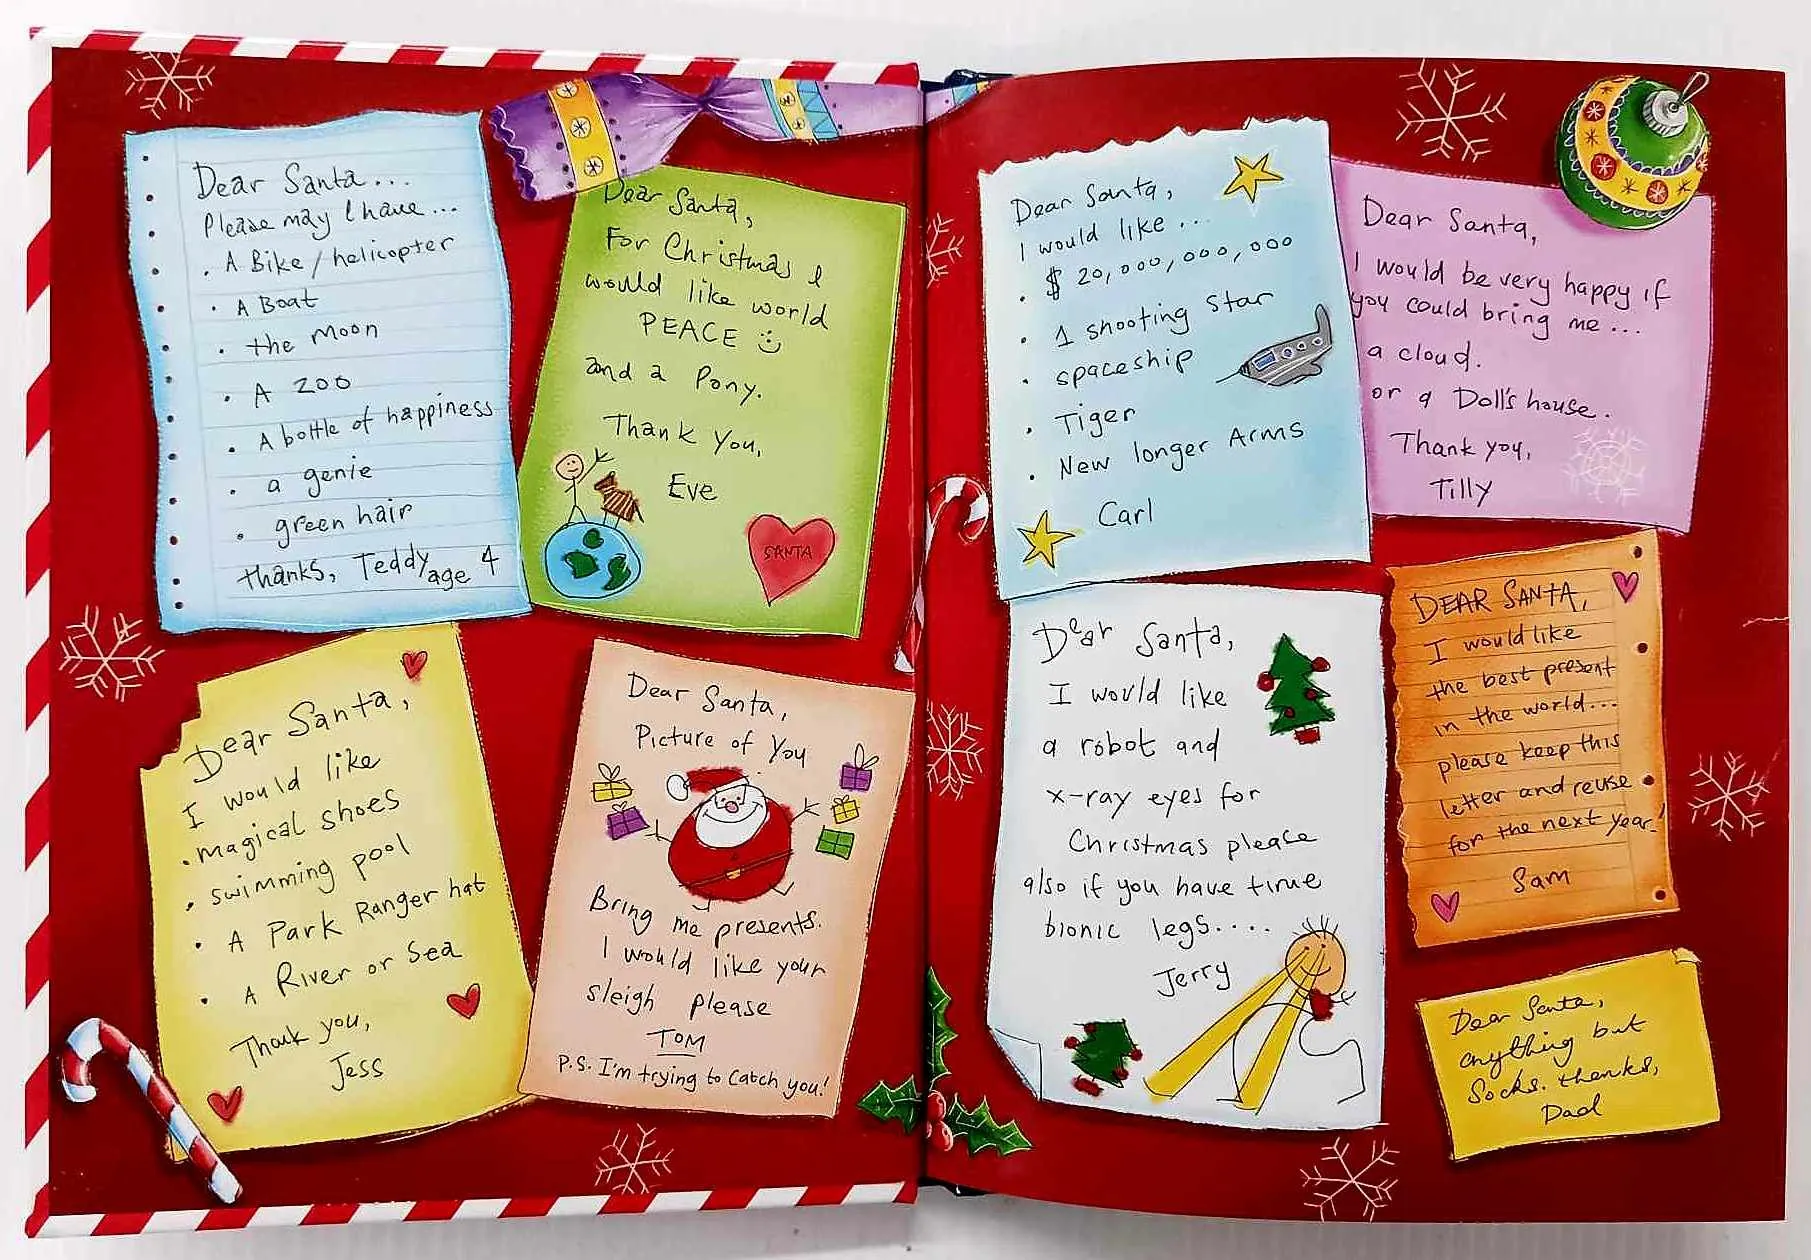 Dear Santa...
Please may I have...
. A Bike / helicopter
. A Boat
. the moon
. A zoo
. A bottle of happiness
. a genie
. green hair
thanks, Teddy age 4
Dear Santa,
For Christmas I
would like world
PEACE
and a Pony.
Thank you,
Eve
SANTA
Dear Santa,
I would like
. magical shoes
. swimming pool
. A Park Ranger hat
. A River or Sea
Thank you,
Jess
Dear Santa,
Picture of You
Bring me presents.
I would like your
sleigh please
TOM
P.S. I'm trying to catch you!
Dear Santa,
I would like...
. $ 20,000,000,000
. 1 shooting star
. spaceship
. Tiger
. New longer Arms
Carl
Dear Santa,
I would be very happy if
you could bring me...
a cloud.
or a Doll's house.
Thank you,
Tilly
Dear Santa,
I would like
a robot and
x-ray eyes for
Christmas please
also if you have time
bionic legs....
Jerry
DEAR SANTA,
I would like
the best present
in the world...
please keep this
letter and reuse
for the next year!
Sam
Dear Santa,
anything but
Socks. thanks,
Dad